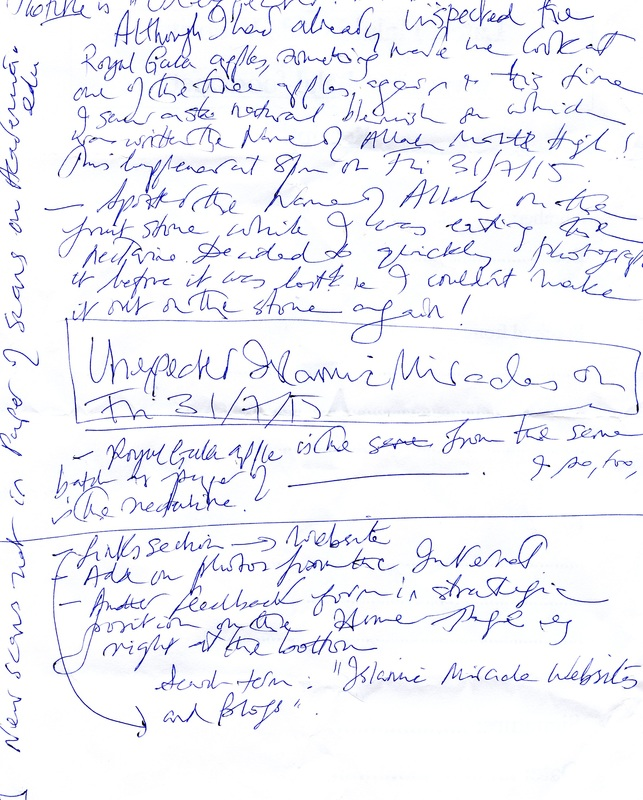 Although I had already inspected the
Royal Gala apples, something made me look at
one of the three apples, again & this time
I saw a natural blemish on which
was written the Name of Allah Most High!
This happened at 8pm on Fri 31/7/15.
– Spotted the Name of Allah on the
fruit stone while I was eating the
nectarine. Decided to quickly photograph
it before it was lost ie I couldn't make
it out on the stone again!
Unexpected Islamic Miracles on
Fri 31/7/15
– Royal Gala apple is the from the same
batch as paper of . & so, too,
is the nectarine.
– Links section → Website
– Add on photos from the Internet
– Another feedback form in strategic
position on the Home Page eg
right at the bottom
Search term: "Islamic Miracle Websites
and Blogs".
New scans not in Paper of Scans on Academia.
edu